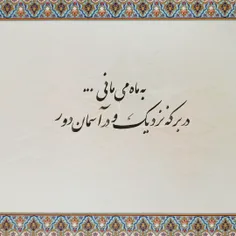 به ماه می مانی ...
در برکه نزدیک و در آسمان دور